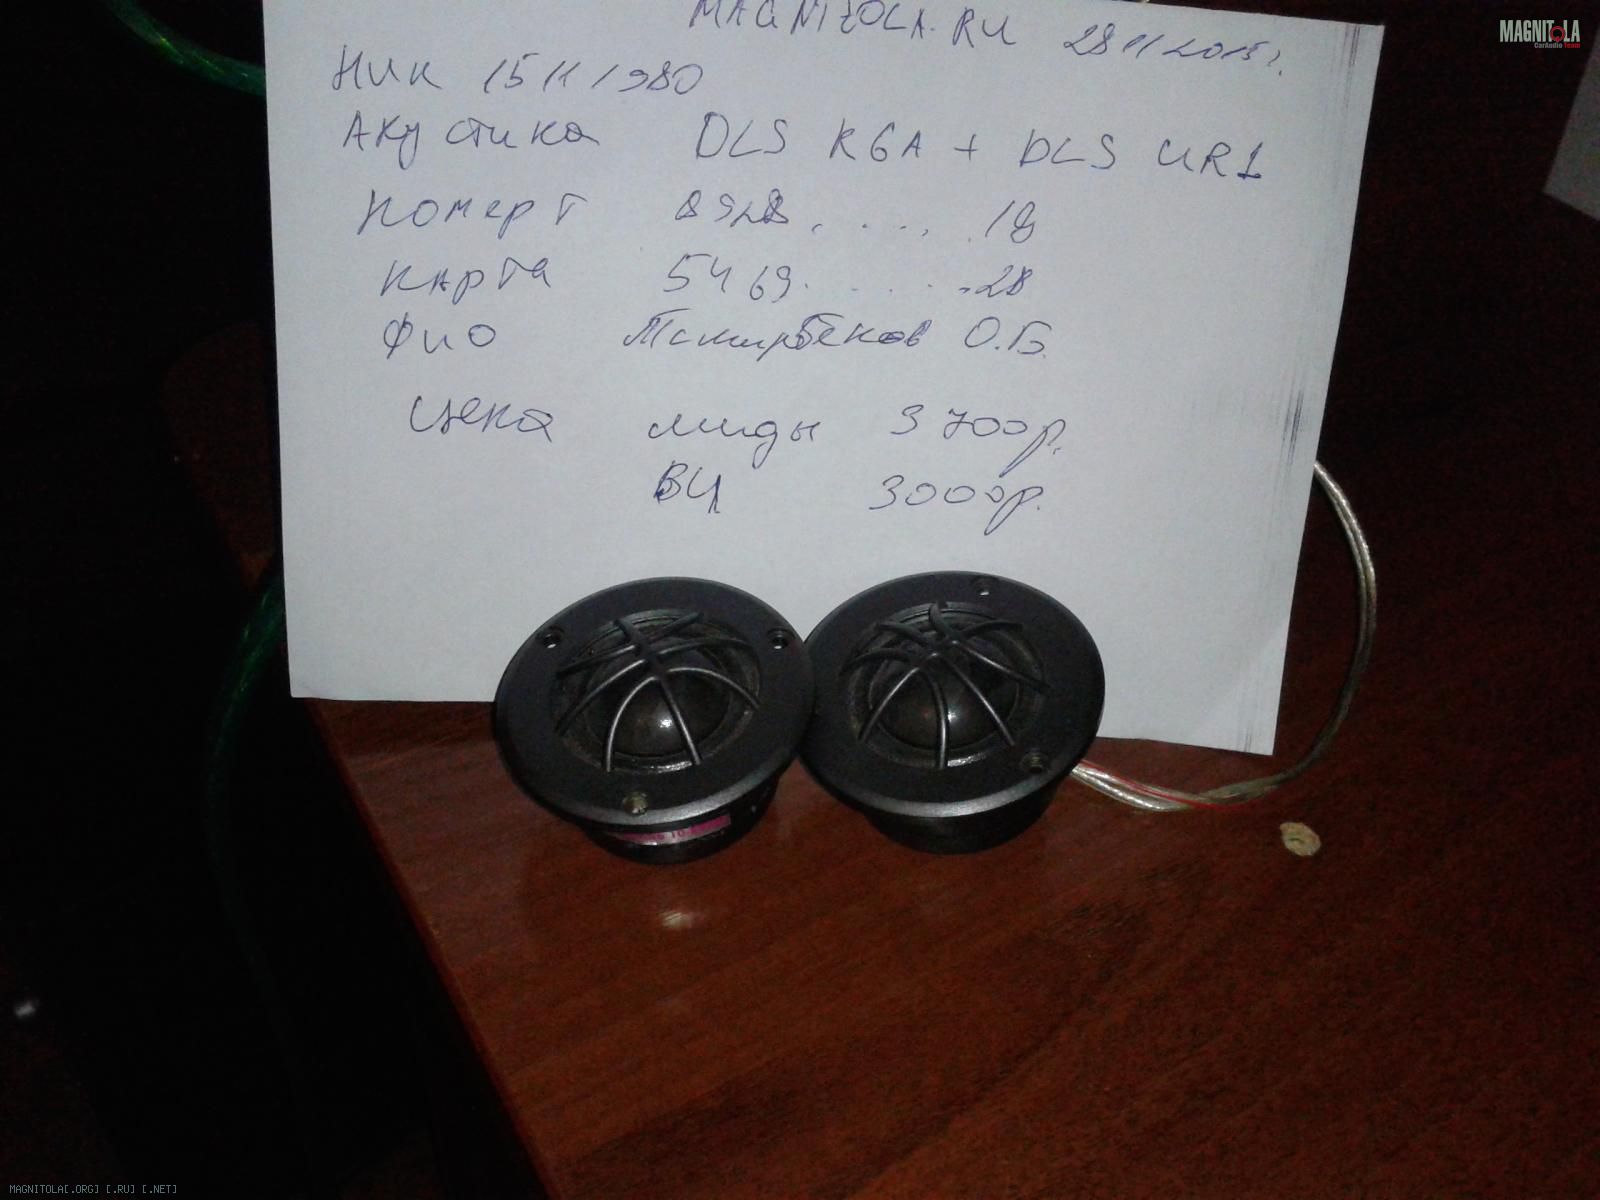 MAGNITOLA.RU 28 11 2015г.
MAGNITOLA
CarAudio Team
Ник 15 11 1980
Акустика DLS R6A + DLS UR1
Номер т 8928 . . . . . 18
карта 5469. . . . . . 28
Фио О.Б.
Цена миды 3700р.
ВЧ 3000р.
MAGNITOLA[.ORG] [.RU] [.NET]